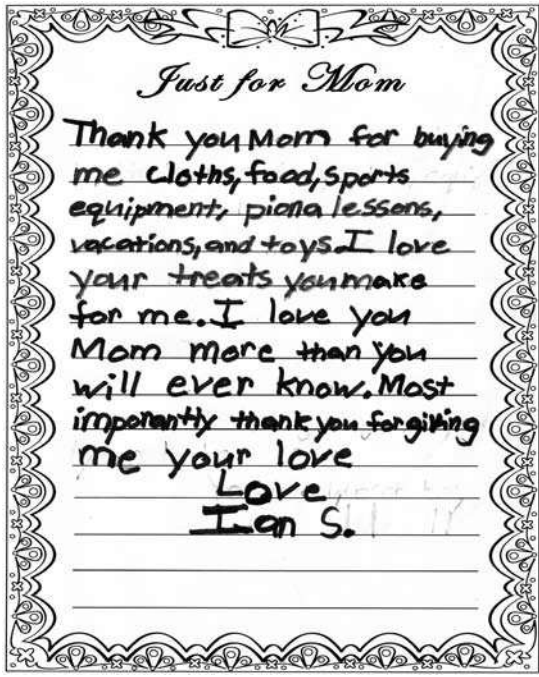 Just for Mom
Thank you Mom for buying
me cloths, food, sports
equipment, piona lessons,
vacations, and toys. I love
your treats you make
for me. I love you
Mom more than you
will ever know. Most
imporantly thank you for giving
me your love
Love
Ian S.